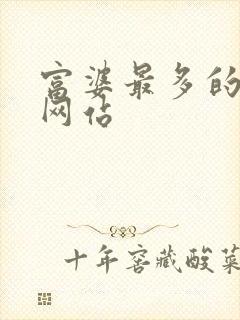 富婆最多的
网站
十年窖藏酸菜